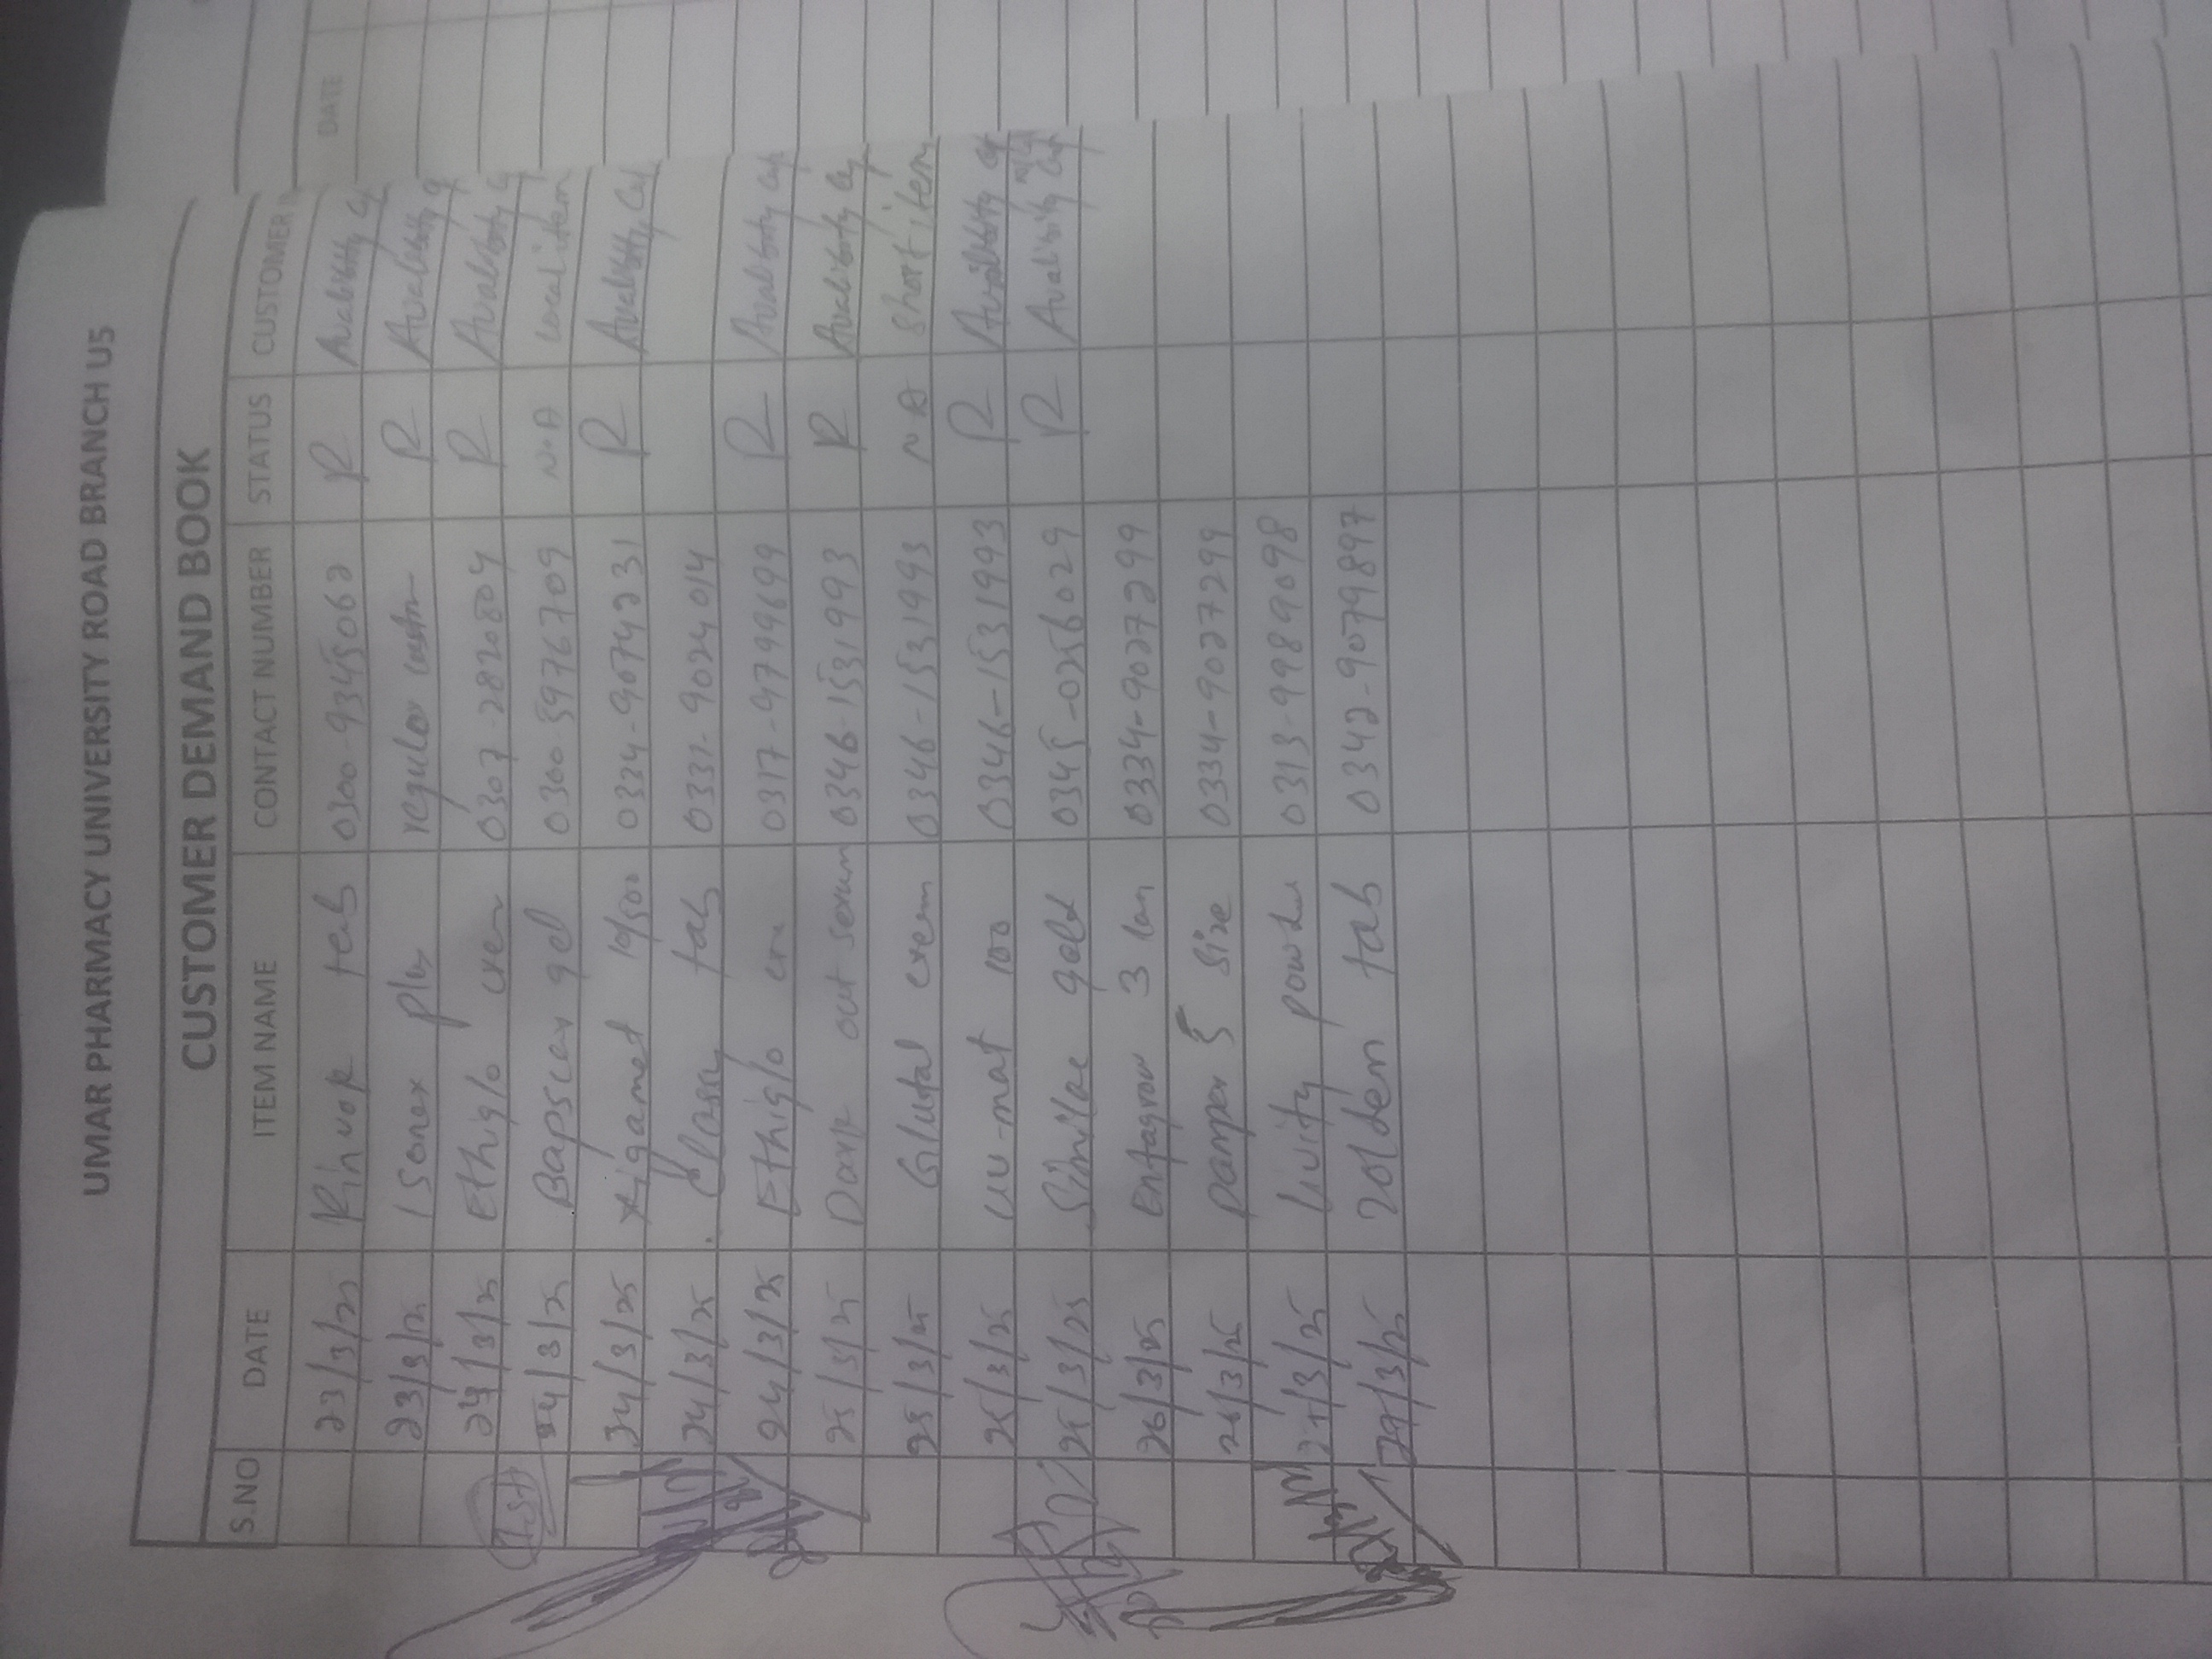 UMAR PHARMACY UNIVERSITY ROAD BRANCH U5
CUSTOMER DEMAND BOOK
S.NO DATE ITEM NAME CONTACT NUMBER STATUS CUSTOMER DATE
23/3/25 Rinvok tab 0300-9345062 R Avalibilty
23/3/25 Isonex plus regular R Avalibilty
24/3/25 Ethiglo 0307-2820804 R Avalibilty
24/3/25 Bapscar gel 0300-5976709 N.A Local item
24/3/25 Xigamet 10/500 0334-9074231 R Avalibilty
24/3/25 Classy tab 0331-9024014
24/3/25 Ethiglo 0317-9799699 R Avalibilty
25/3/25 Dark out serum 0346-1531993 R Avalibilty
25/3/25 Glutal crem 0346-1531993 NA Short item
25/3/25 100 0346-1531993 R Avalibilty
25/3/25 Similac gold 0345-0256029 R Avalibilty
26/3/25 Enfagrow 3 0334-9027299
26/3/25 Pamper 5 size 0334-9027299
powder 0313-9989098
29/3/25 Zolden tab 0342-9079897